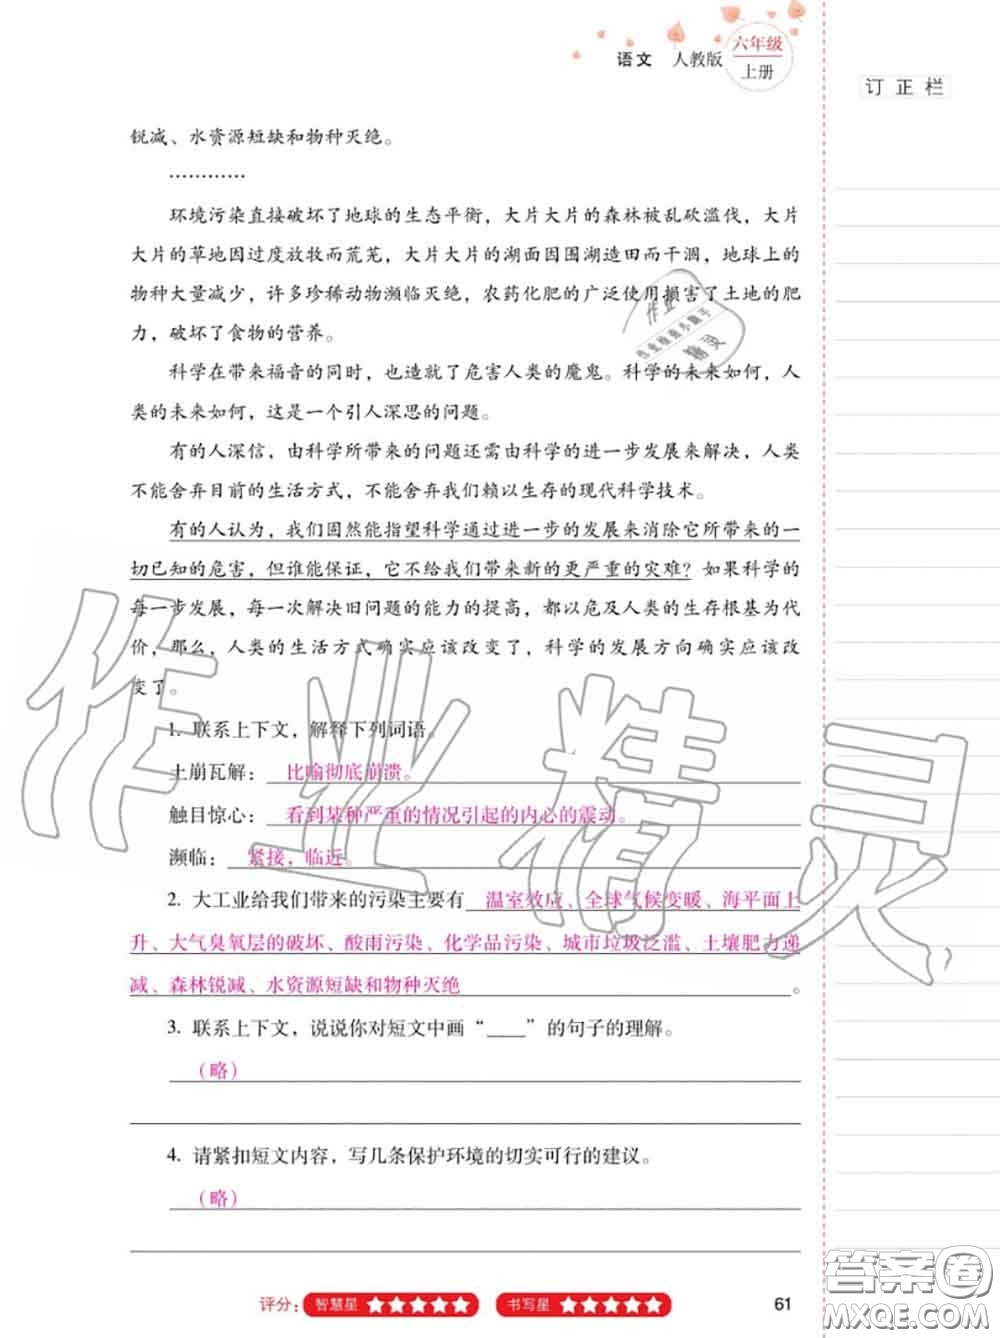 语文 人教版 六年级
上册
订 正 栏
锐减、水资源短缺和物种灭绝。
…………
环境污染直接破坏了地球的生态平衡，大片大片的森林被乱砍滥伐，大片
大片的草地因过度放牧而荒芜，大片大片的湖面因围湖造田而干涸，地球上的
物种大量减少，许多珍稀动物濒临灭绝，农药化肥的广泛使用损害了土地的肥
力，破坏了食物的营养。
科学在带来福音的同时，也造就了危害人类的魔鬼。科学的未来如何，人
类的未来如何，这是一个引人深思的问题。
有的人深信，由科学所带来的问题还需由科学的进一步发展来解决，人类
不能舍弃目前的生活方式，不能舍弃我们赖以生存的现代科学技术。
有的人认为，我们固然能指望科学通过进一步的发展来消除它所带来的一
切已知的危害，但谁能保证，它不给我们带来新的更严重的灾难？如果科学的
每一步发展，每一次解决旧问题的能力的提高，都以危及人类的生存根基为代
价，那么，人类的生活方式确实应该改变了，科学的发展方向确实应该改
变了。
1. 联系上下文，解释下列词语。
土崩瓦解： 比喻彻底崩溃。
触目惊心： 看到某种严重的情况引起的内心的震动。
濒临： 紧接，临近。
2. 大工业给我们带来的污染主要有 温室效应、全球气候变暖、海平面上
升、大气臭氧层的破坏、酸雨污染、化学品污染、城市垃圾泛滥、土壤肥力递
减、森林锐减、水资源短缺和物种灭绝 。
3. 联系上下文，说说你对短文中画“____”的句子的理解。
（略）
4. 请紧扣短文内容，写几条保护环境的切实可行的建议。
（略）
评分： 智慧星 ★★★★★ 书写星 ★★★★★ 61
作业精灵
答案卷
MXQE.COM